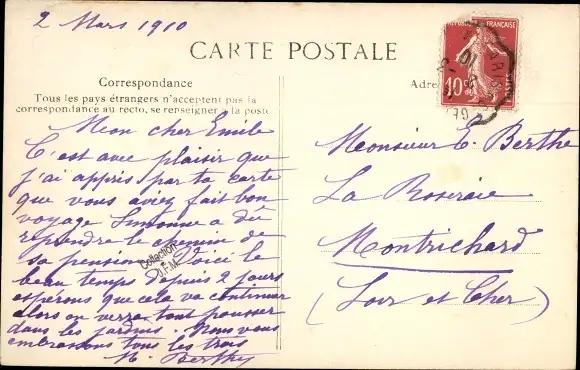 2 Mars 1910
CARTE POSTALE
Correspondance
Tous les pays étrangers n'acceptent pas la
correspondance au recto, se renseigner à la poste
Mon cher Emile
C'est avec plaisir que
j'ai appris par ta carte
que vous aviez fait bon
voyage Simonne a dû
reprendre le chemin de
sa pension. Voici le
beau temps depuis 2 jours
espérons que cela va continuer
alors on verra tout pousser
dans les jardins. Nous vous
embrassons tous les trois
Collection
J.F.M.
Adre
RÉPUBLIQUE FRANÇAISE
10c
POSTES
PARIS
Monsieur E. Berthe
La Roseraie
Montrichard
(Loir et Cher)